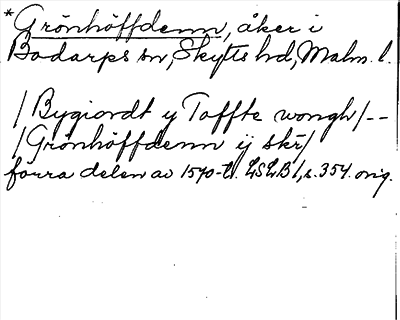 *Grönhöffdenn, åker i
Bodarps sn, Skytts hd, Malm. l.
/Bygiordt y Toffte wongh/--
/Grönhöffdenn ij skr/
förra delen av 1570-t. LSLB 1, s. 354. orig.